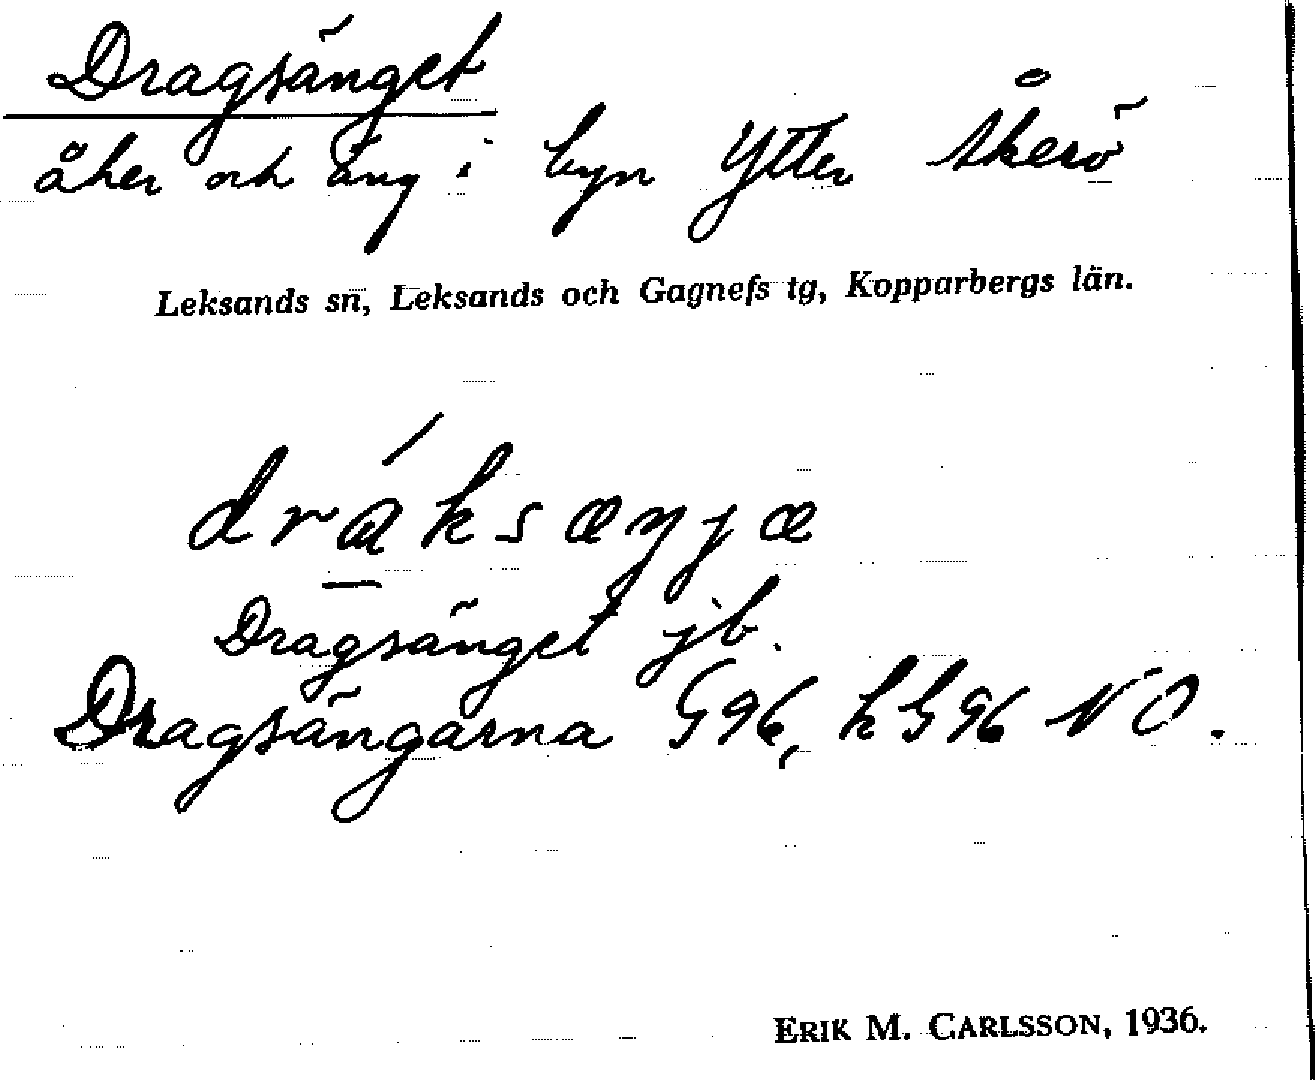 Dragsänget
åker och äng i byn Ytter Åkerö
Leksands sn, Leksands och Gagnefs tg, Kopparbergs län.
dráksæŋjæ
Dragsänget jb.
Dragsängarna G96, kG96 NO.
ERIK M. CARLSSON, 1936.